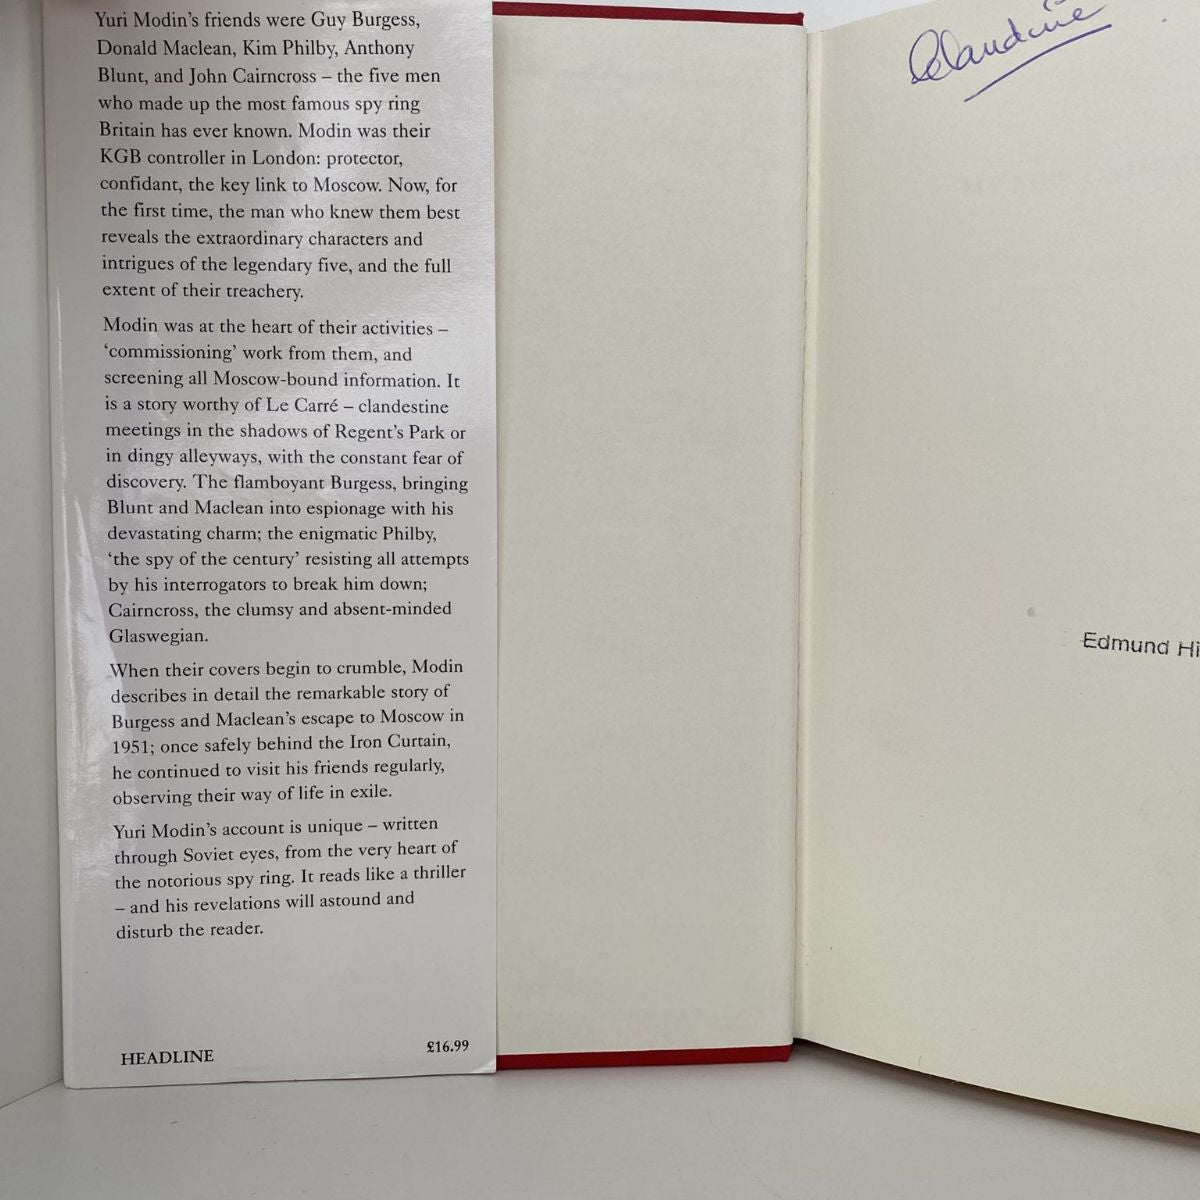 Yuri Modin's friends were Guy Burgess,
Donald Maclean, Kim Philby, Anthony
Blunt, and John Cairncross – the five men
who made up the most famous spy ring
Britain has ever known. Modin was their
KGB controller in London: protector,
confidant, the key link to Moscow. Now, for
the first time, the man who knew them best
reveals the extraordinary characters and
intrigues of the legendary five, and the full
extent of their treachery.
Modin was at the heart of their activities –
‘commissioning’ work from them, and
screening all Moscow-bound information. It
is a story worthy of Le Carré – clandestine
meetings in the shadows of Regent's Park or
in dingy alleyways, with the constant fear of
discovery. The flamboyant Burgess, bringing
Blunt and Maclean into espionage with his
devastating charm; the enigmatic Philby,
‘the spy of the century’ resisting all attempts
by his interrogators to break him down;
Cairncross, the clumsy and absent-minded
Glaswegian.
When their covers begin to crumble, Modin
describes in detail the remarkable story of
Burgess and Maclean's escape to Moscow in
1951; once safely behind the Iron Curtain,
he continued to visit his friends regularly,
observing their way of life in exile.
Yuri Modin's account is unique – written
through Soviet eyes, from the very heart of
the notorious spy ring. It reads like a thriller
– and his revelations will astound and
disturb the reader.
HEADLINE
£16.99
Edmund Hi